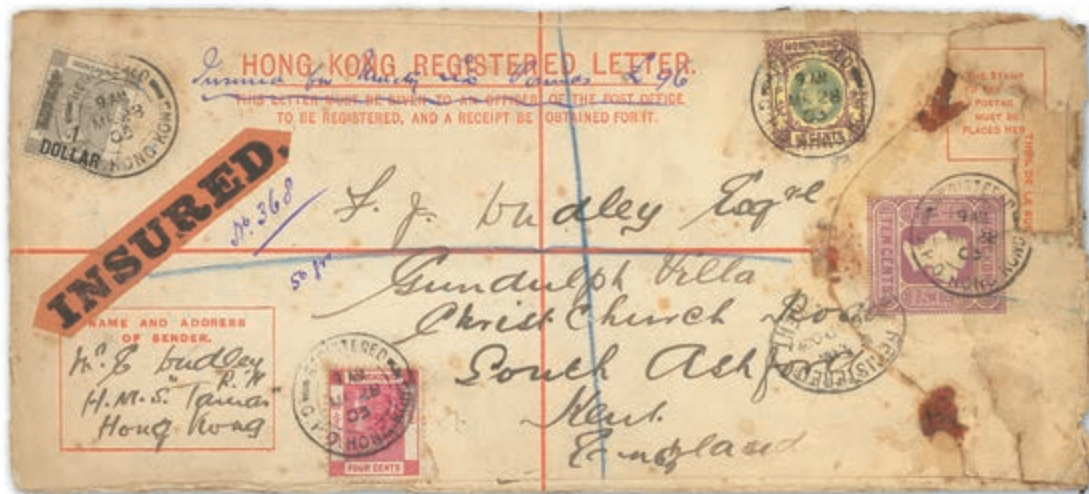 HONG KONG REGISTERED LETTER.
Insured for Ninety six Pounds £96
THIS LETTER MUST BE GIVEN TO AN OFFICER OF THE POST OFFICE
TO BE REGISTERED, AND A RECEIPT BE OBTAINED FOR IT.
THE STAMP
POSTAG
MUST BE
PLACED HER
1
DOLLAR
HONG KONG
INSURED.
No 368
50 fr
L. J. Dudley Esqre
Gundulph Villa
Christ Church Road
South Ashford
Kent
England
TEN CENTS
REGISTERED
HONG KONG
NAME AND ADDRESS
OF SENDER.
Mr E Dudley
R.N
H.M.S. "Tamar"
Hong Kong
REGISTERED
HONG KONG
FOUR CENTS